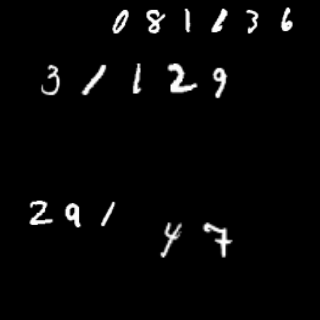 081136
31129
291
47